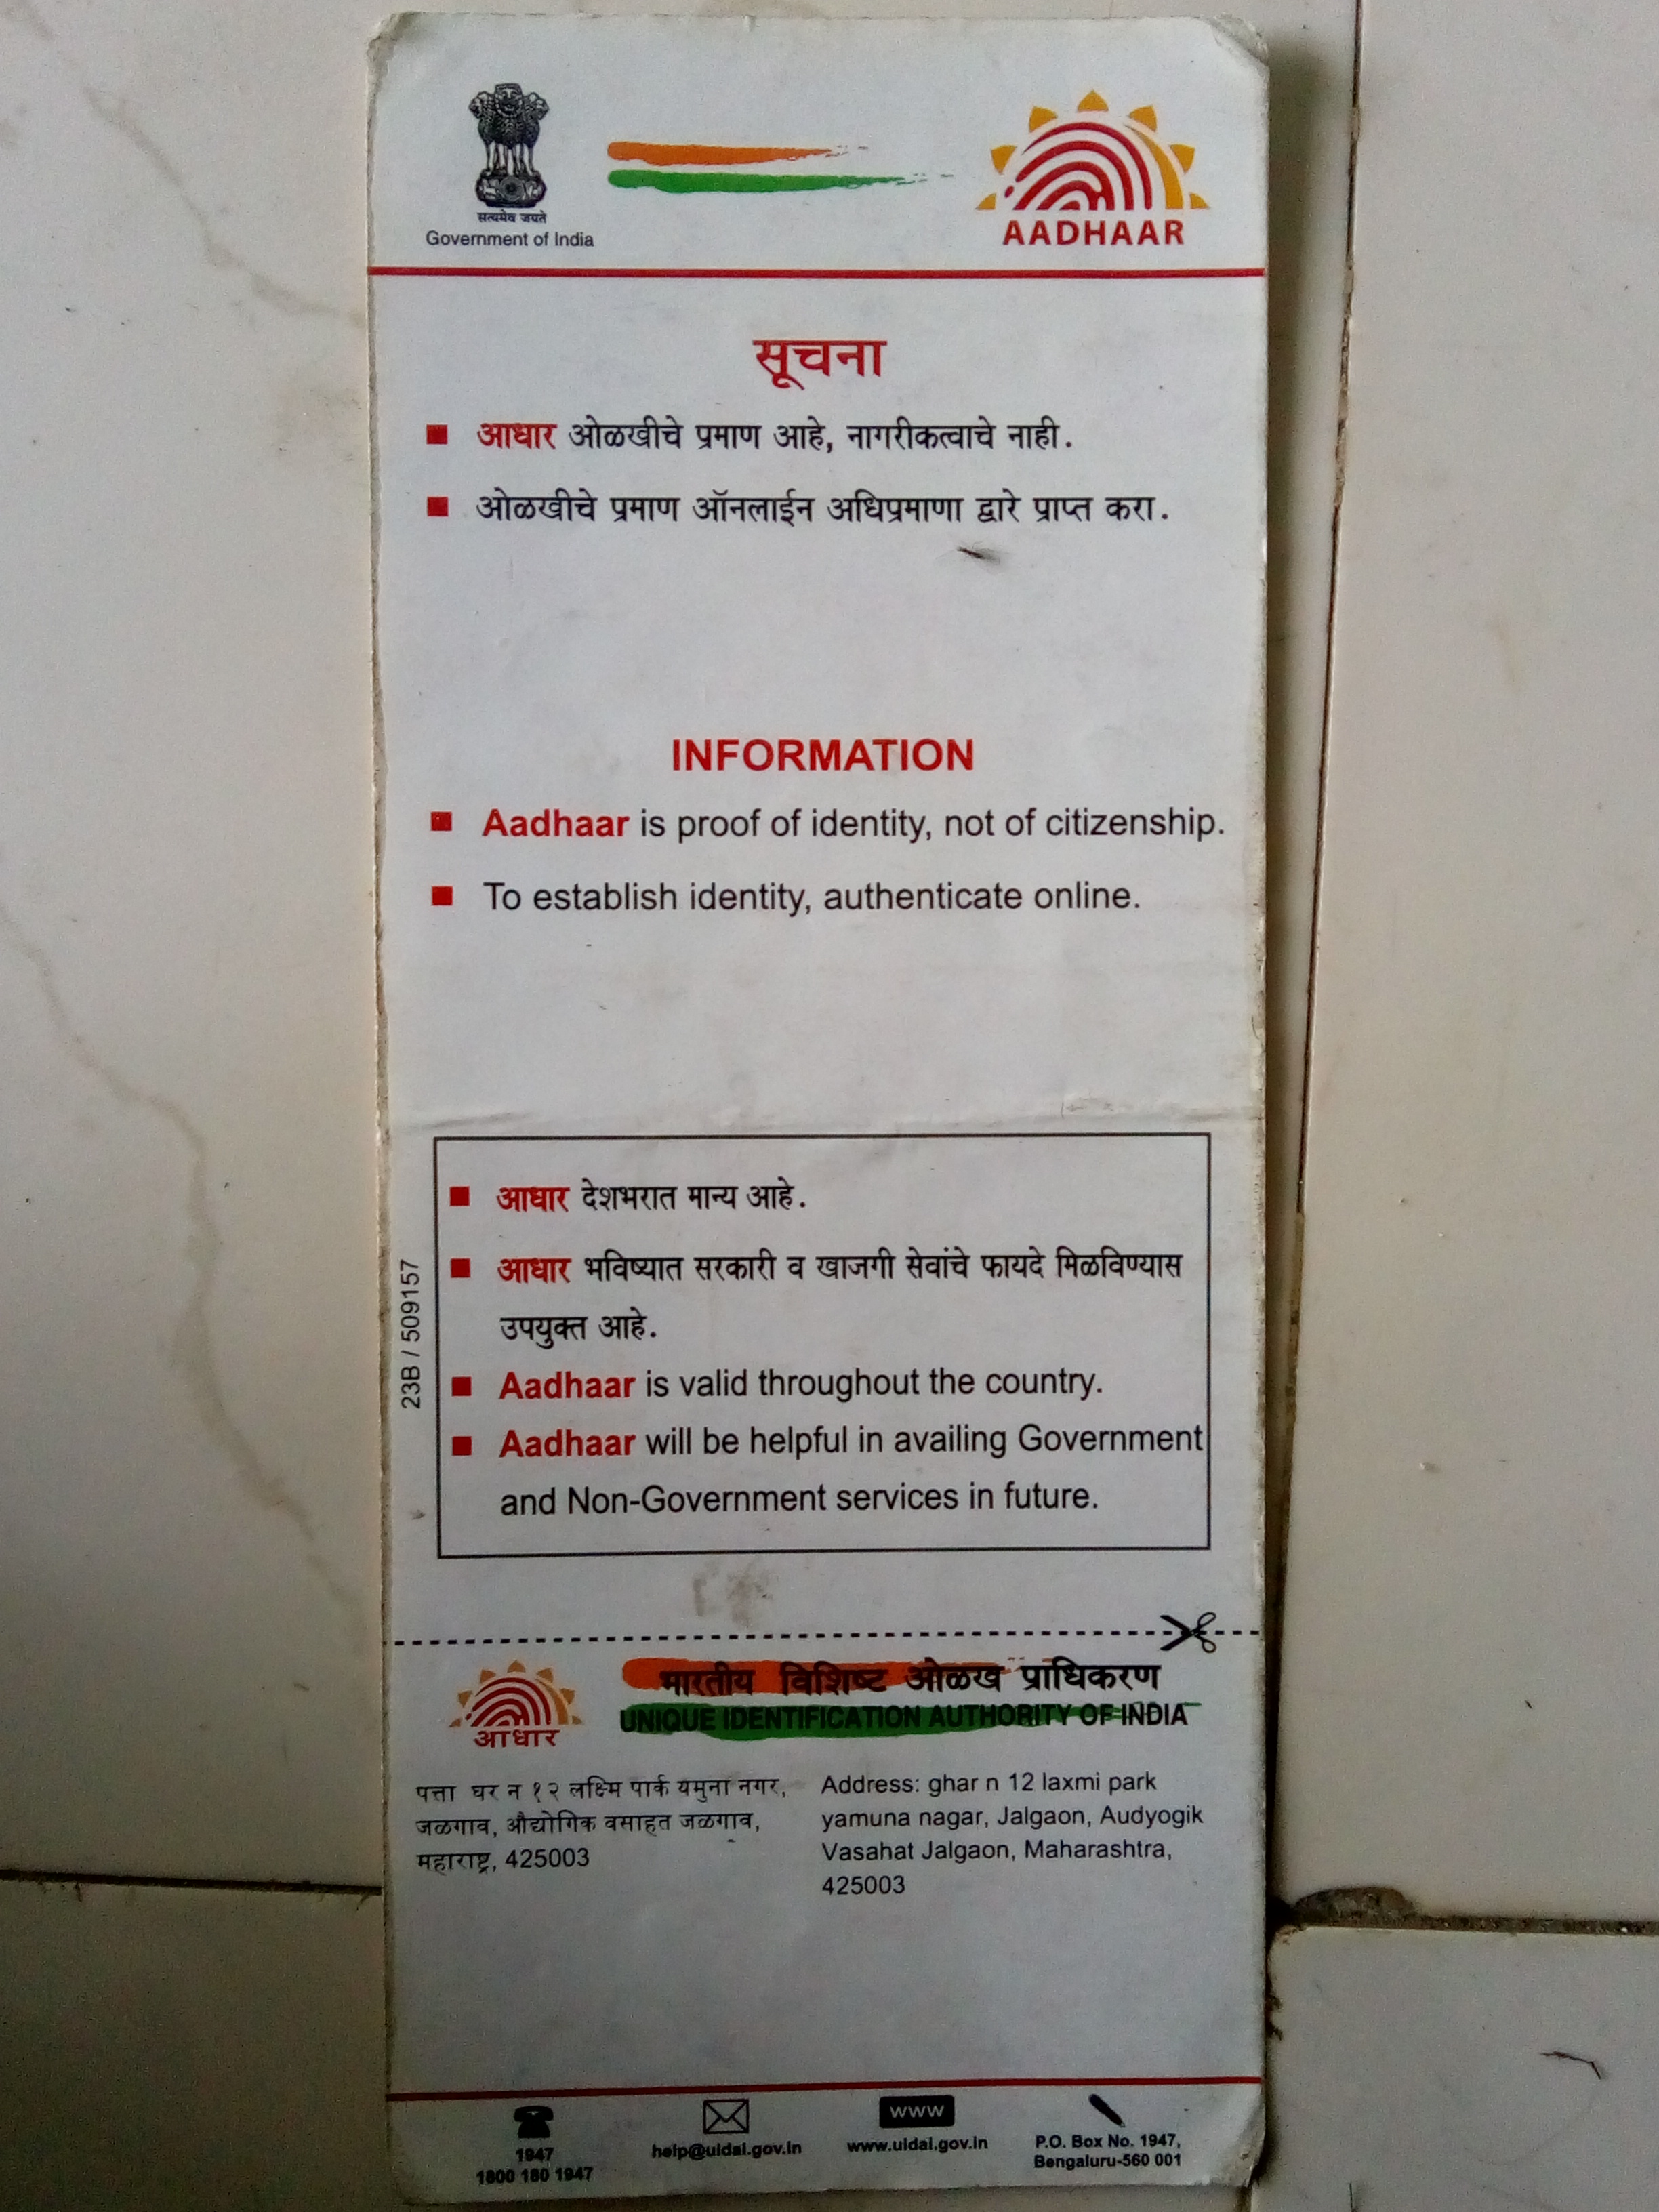 सत्यमेव जयते
Government of India
AADHAAR
सूचना
आधार ओळखीचे प्रमाण आहे, नागरीकत्वाचे नाही.
ओळखीचे प्रमाण ऑनलाईन अधिप्रमाणा द्वारे प्राप्त करा.
INFORMATION
Aadhaar is proof of identity, not of citizenship.
To establish identity, authenticate online.
23B / 509157
आधार देशभरात मान्य आहे.
आधार भविष्यात सरकारी व खाजगी सेवांचे फायदे मिळविण्यास
उपयुक्त आहे.
Aadhaar is valid throughout the country.
Aadhaar will be helpful in availing Government
and Non-Government services in future.
आधार
भारतीय विशिष्ट ओळख प्राधिकरण
UNIQUE IDENTIFICATION AUTHORITY OF INDIA
पत्ता घर न १२ लक्ष्मि पार्क यमुना नगर,
जळगाव, औद्योगिक वसाहत जळगाव,
महाराष्ट्र, 425003
Address: ghar n 12 laxmi park
yamuna nagar, Jalgaon, Audyogik
Vasahat Jalgaon, Maharashtra,
425003
1947
1800 180 1947
help@uidai.gov.in
www
www.uidai.gov.in
P.O. Box No. 1947,
Bengaluru-560 001